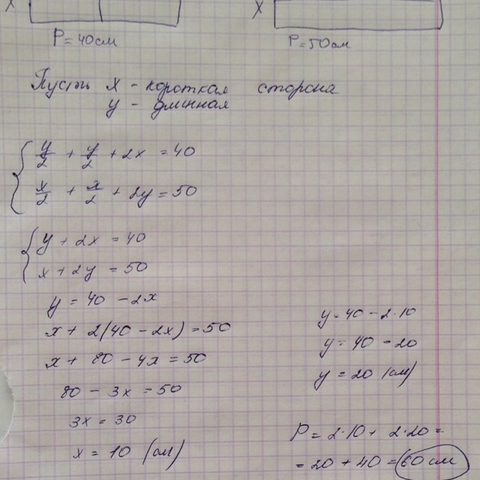 x
x
P = 40 см
P = 50 см
Пусть x - короткая сторона
y - длинная
y/2 + y/2 + 2x = 40
x/2 + x/2 + 2y = 50
y + 2x = 40
x + 2y = 50
y = 40 - 2x
x + 2(40 - 2x) = 50
x + 80 - 4x = 50
80 - 3x = 50
3x = 30
x = 10 (см)
y = 40 - 2·10
y = 40 - 20
y = 20 (см)
P = 2·10 + 2·20 =
= 20 + 40 = 60 см